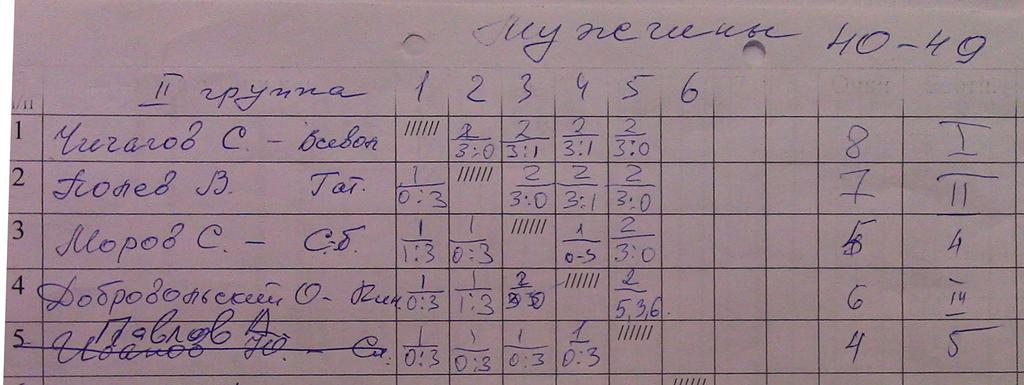 Мужчины 40-49
II группа 1 2 3 4 5 6
1 Чичагов С. - Всевол 2/3:0 2/3:1 2/3:1 2/3:0 8 I
2 Попев В. Гат. 1/0:3 2/3:0 2/3:1 2/3:0 7 II
3 Моров С. - С.б. 1/1:3 1/0:3 1/0-3 2/3:0 5 4
4 Добровольский О- Кин. 1/0:3 1/1:3 2/3:0 2/5,3,6. 6 III
Павлов А
5 Иванов Ю. - Сл. 1/0:3 1/0:3 1/0:3 1/0:3 4 5